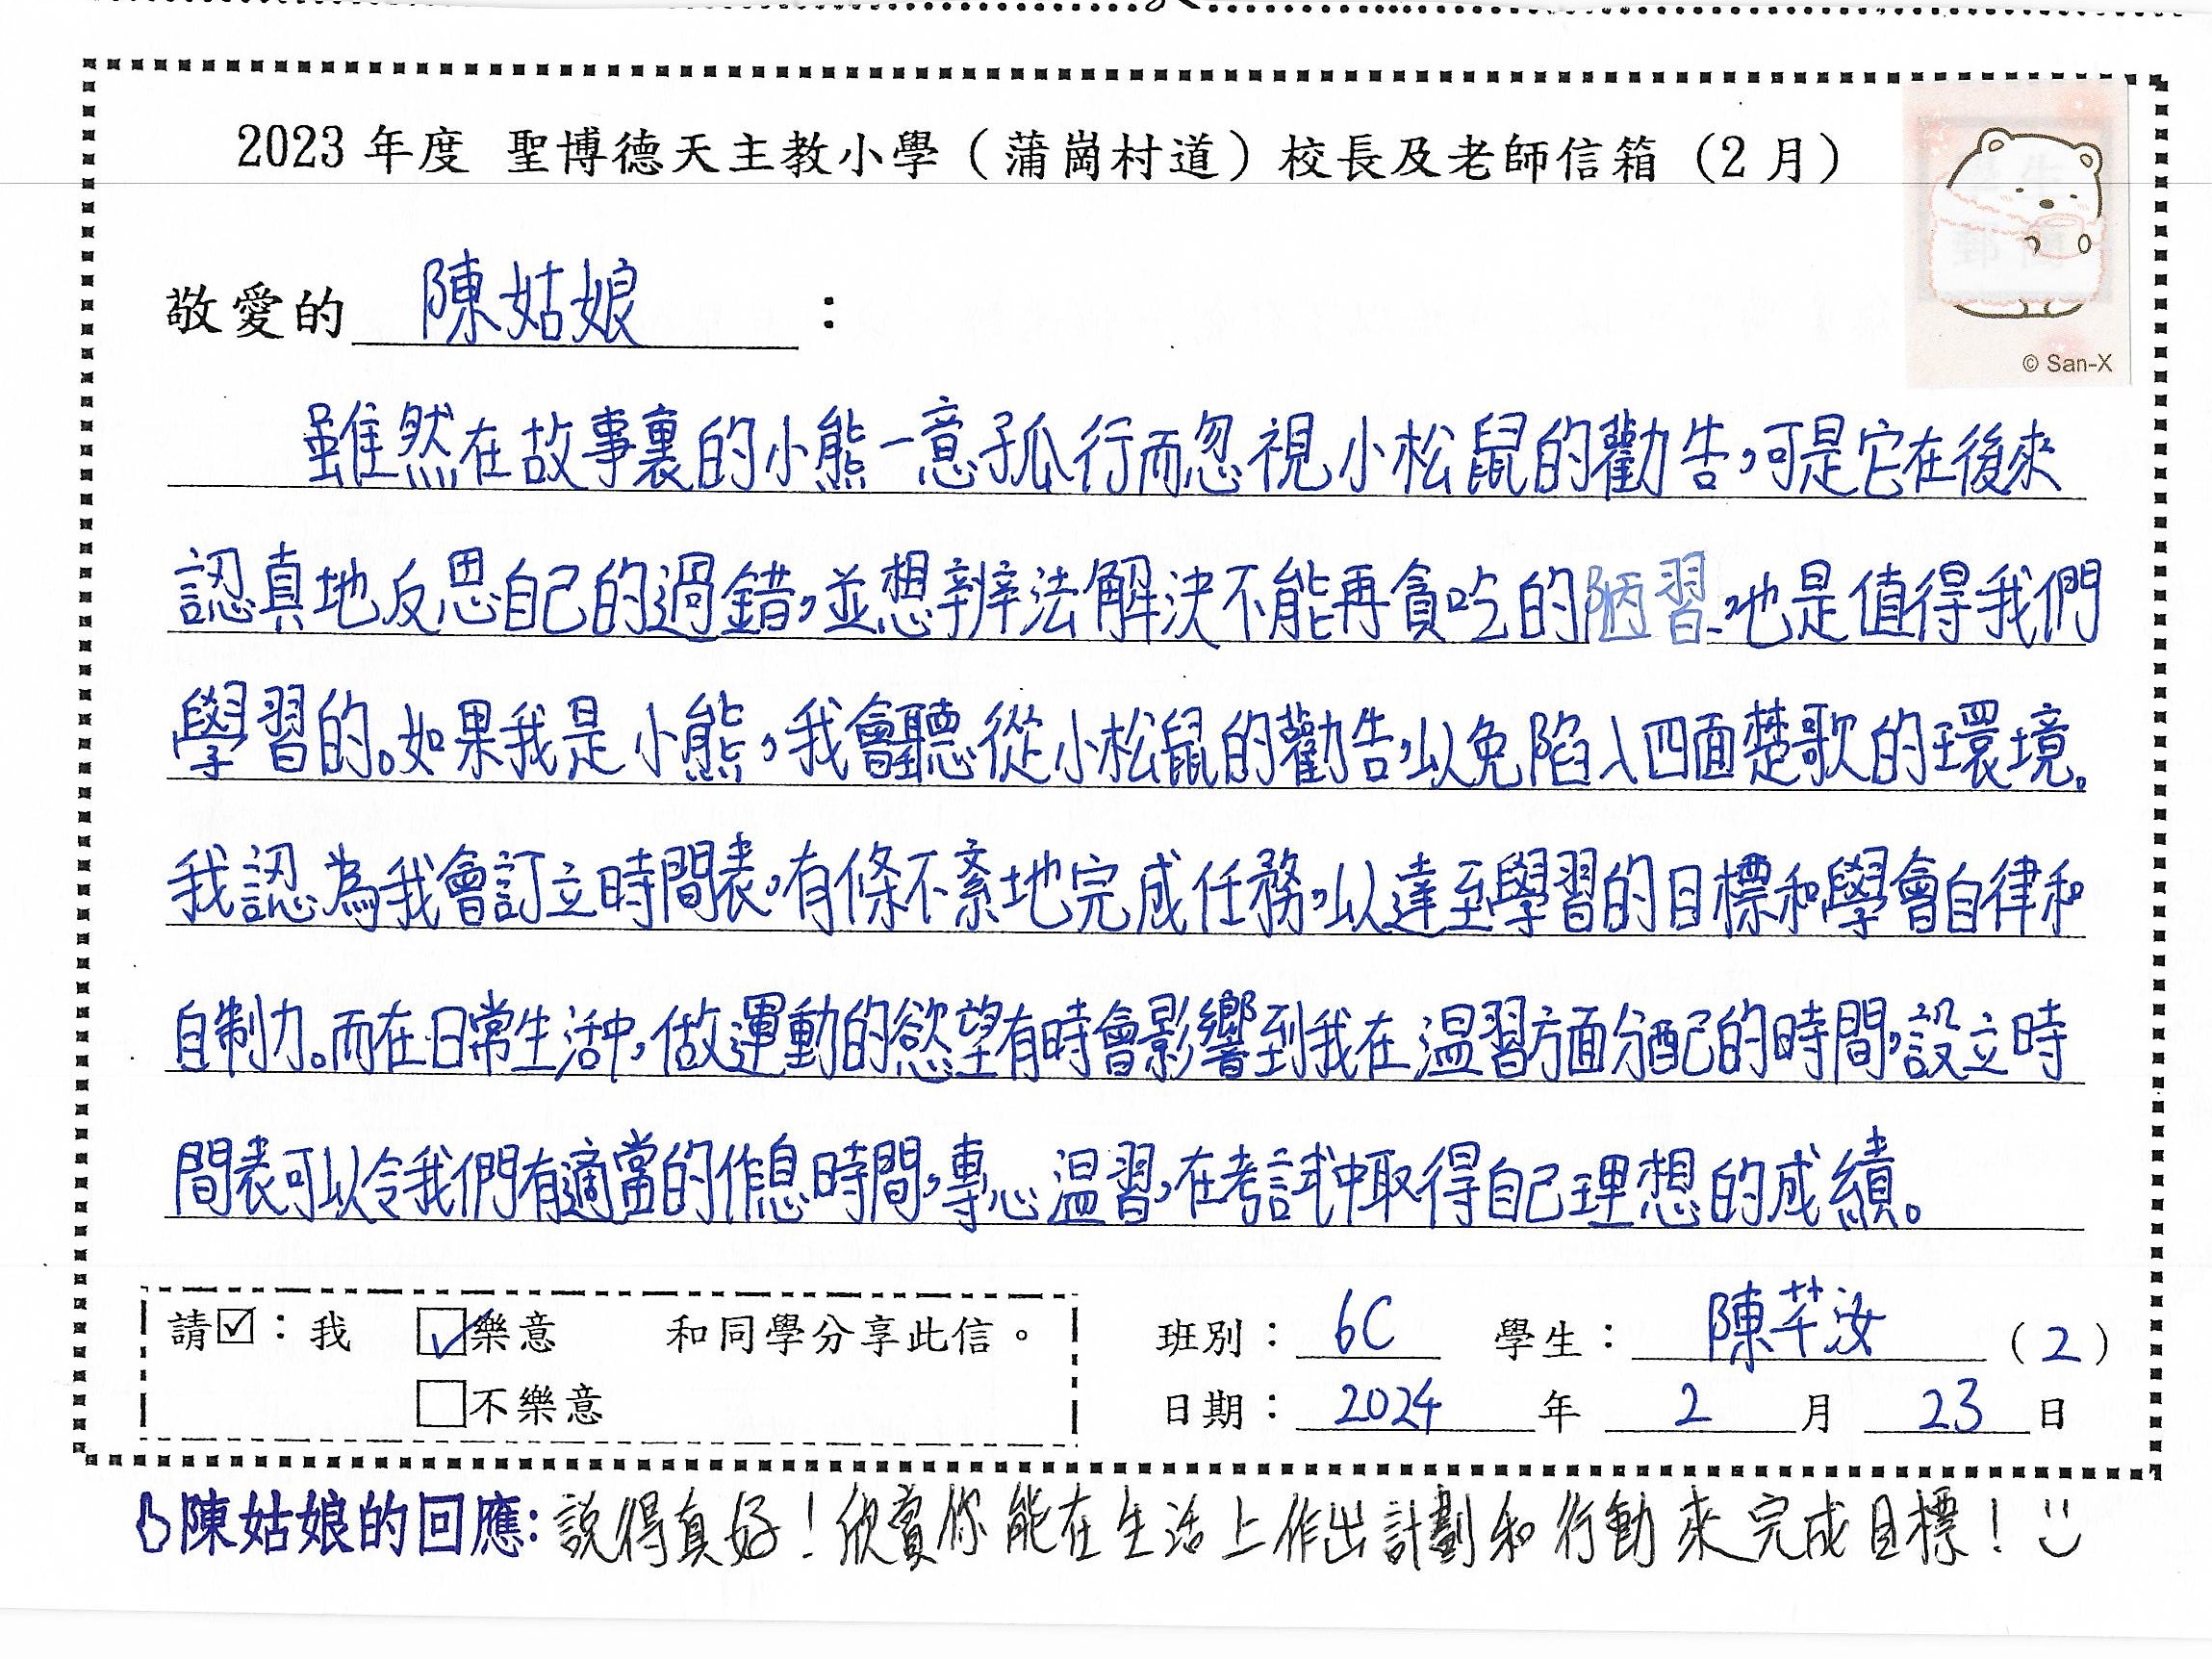 2023 年度 聖博德天主教小學（蒲崗村道）校長及老師信箱（2 月）
© San-X
敬愛的 陳姑娘 ：
雖然在故事裏的小熊一意孤行而忽視小松鼠的勸告，可是它在後來
認真地反思自己的過錯，並想辦法解決不能再貪吃的陋習，也是值得我們
學習的。如果我是小熊，我會聽從小松鼠的勸告，以免陷入四面楚歌的環境。
我認為我會訂立時間表，有條不紊地完成任務，以達至學習的目標和學會自律和
自制力。而在日常生活中，做運動的慾望有時會影響到我在溫習方面分配的時間，設立時
間表可以令我們有適當的作息時間，專心溫習，在考試中取得自己理想的成績。
請☑：我 ☑樂意 和同學分享此信。
□不樂意
班別： 6C 學生： 陳芊汝 （2）
日期： 2024 年 2 月 23 日
陳姑娘的回應：說得真好！欣賞你能在生活上作出計劃和行動來完成目標！